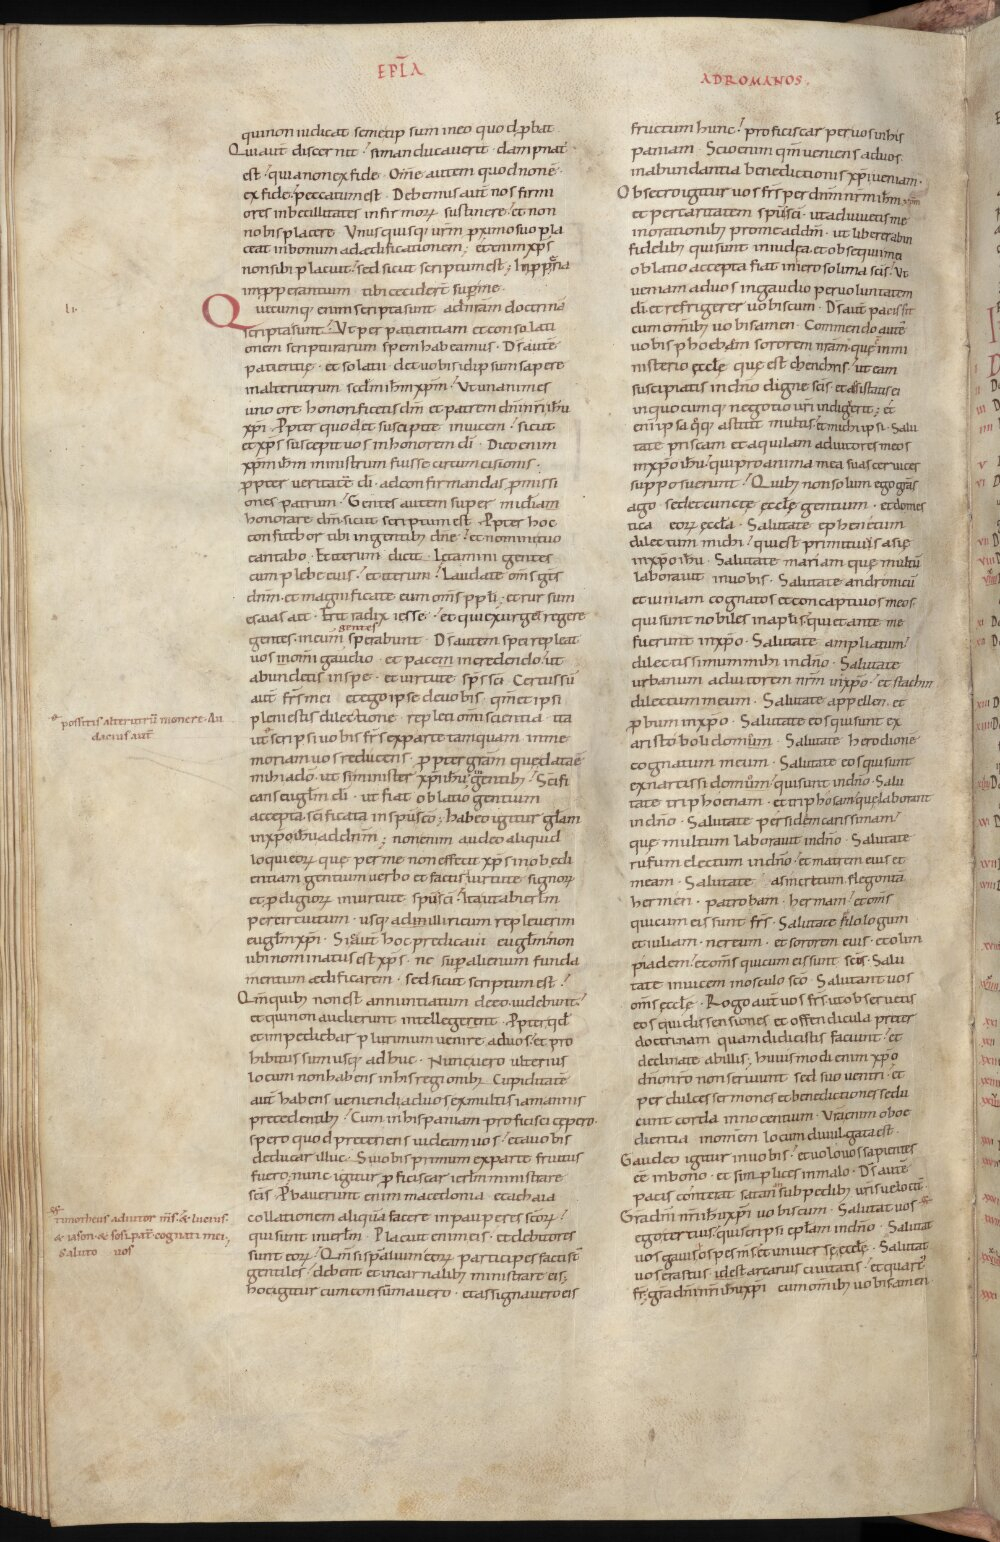 EPL̄A
AD ROMANOS.
qui non iudicat semetipsum in eo quod ꝓbat
Qui aut̄ discernit si manducauerit dampnat᷒
est quia non ex fide. Om̄e autem quod non ē
ex fide peccatum est. Debemus aut̄ nos firmi
ores inbecillitates infirmoꝝ sustinere et non
nobis placere. Unusquisq; ur̄m ꝓximo suo pla
ceat in bonum ad edificationem; etenim xp̄s
non sibi placuit sed sicut scriptum est; Inpꝓpria
inpꝓperantium tibi cecidert̄ super me.
Quecumq; enim scripta sunt ad nr̄am doctrinā
scripta sunt. Ut per patientiam et consolati
onem scripturarum spem habeamus. Ds̄ autē
patientię et solatii det uobis id ipsum sapere
in alterutrum scd̄m ih̄m xp̄m. Ut unanimes
uno ore honorificetis dm̄ et patrem dn̄i nr̄i ih̄u
xp̄i. Ꝓpter quod et suscipite inuicem sicut
et xp̄s suscepit uos in honorem dī. Dico enim
xp̄m ih̄m ministrum fuisse circumcisionis.
ꝓpter ueritatē dī ad confirmandas ꝓmissi
ones patrum. Gentes autem super mis̄diam
honorare dm̄ sicut scriptum est. Ꝓpter hoc
confitebor tibi in gentib; dn̄e et nomini tuo
cantabo. Et iterum dicit. Letamini gentes
cum plebe eius et iterum Laudate om̄s gn̄s
dn̄m et magnificate eum om̄s ppl̄i et rursum
esaias ait. Erit radix iesse et qui exurget regere
gentes
gentes in eum sperabunt. Ds̄ autem spei repleat
uos in om̄i gaudio et pacem in credendo ut
abundetis in spe et uirtute sp̄s sc̄i. Certus sū
aut̄ frs̄ mei et ego ipse de uobis qm̄ et ipsi
pleni estis dilectione repleti om̄i scientia ita
possitis alterutrū monere. Au
dacius aut̄
ut scripsi uobis frs̄ ex parte tamquam in me
moriam uos reducens ꝓpter grām que data ē
mihi a dō ut sim minister xp̄i ih̄u gentib; Scifi
cans eugl̄m dī ut fiat oblatio gentium
accepta scificata in sp̄u sc̄o; habeo igitur glām
in xp̄o ih̄u ad dn̄m; non enim audeo aliquid
loqui eoꝝ que per me non effecit xp̄s in obedi
entiam gentium uerbo et factis uirtute signoꝝ
et ꝓdigioꝝ in uirtute sp̄s sc̄i Ita ut ab ierl̄m
per circuitum usq; ad illiricum repleuerim
eugl̄m xp̄i. Sic aut̄ hoc predicaui eugl̄m non
ubi nominatus est xp̄s ne sup alienum funda
mentum ædificarem sed sicut scriptum est
Qm̄ quib; non est annuntiatum de eo uidebunt
et qui non audierunt intellegerent. Ꝓpter qd̄
et impediebar plurimum uenire ad uos et pro
hibitus sum usq; adhuc. Nunc uero ulterius
locum non habens in his regionib; Cupiditatē
aut̄ habens ueniendi ad uos ex multis iam annis
precedentib; Cum in hispaniam proficisci cepero
spero quod preteriens uideam uos et a uobis
deducar illuc. Si uobis primum ex parte fruitus
fuero; nunc igitur ꝓficiscar ierl̄m ministrare
sc̄is. Ꝓbauerunt enim macedonia et achaia
collationem aliquā facere in pauperes sc̄oꝝ
qui sunt in ierl̄m. Placuit enim eis et debitores
sunt eoꝝ. Qm̄ si sp̄aliuum eoꝝ participes facti st̄
gentiles debent et in carnalib; ministrare eis;
hoc igitur cum consumauero et assignauero eis
timotheus adiutor ms̄ & lucius
& iason & sosipat̄ cognati mei,
Saluto uos
fructum hunc proficiscar per uos in his
paniam. Scio enim qm̄ ueniens ad uos
in abundantia benedictionis xp̄i ueniam.
Obsecro igitur uos frs̄ per dn̄m nr̄m ih̄m xp̄m
et per caritatem sp̄s sc̄i ut adiuuetis me
in orationib; pro me ad dm̄ ut liberer ab in
fidelib; qui sunt in iudea et obsequii mei
oblatio accepta fiat in ierosolima sc̄is. Ut
ueniam ad uos in gaudio per uoluntatem
dī et refrigerer uobiscum. Ds̄ aut̄ pacis sit
cum om̄ib; uobis amen. Commendo autē
uobis phoebam sororem nr̄am que in mi
nisterio eccl̄e que est chenchris ut eam
suscipiatis in dn̄o digne sc̄is et assistatis ei
in quocumq; negotio ur̄i indigerit; et
enī ipsa q̄q; astitit multis et michi ipsi. Salu
tate priscam et aquilam adiutores meos
in xp̄o ih̄u qui pro anima mea suas ceruices
supposuerunt. Quib; non solum ego grās
ago sed et cuncte eccl̄e gentium et domes
tica eoꝝ eccl̄a. Salutate ephenetum
dilectum michi qui est primitiuus asię
in xp̄o ih̄u. Salutate mariam que multū
laborauit in uobis. Salutate andronicū
et iuniam cognatos et concaptiuos meos
qui sunt nobiles in aplīs qui et ante me
fuerunt in xp̄o. Salutate ampliatum
dilectissimum mihi in dn̄o. Salutate
urbanum adiutorem nr̄m in xp̄o et stachin
dilectum meum. Salutate appellen et
ꝓbum in xp̄o. Salutate eos qui sunt ex
aristoboli domum. Salutate herodionē
cognatum meum. Salutate eos qui sunt
ex nartissi domum qui sunt in dn̄o. Salu
tate triphoenam et triphosam que laborant
in dn̄o. Salutate persidem carissimam
que multum laborauit in dn̄o. Salutate
rufum electum in dn̄o et matrem eius et
meam. Salutate asincretum flegontā
hermen patrobam hermam et om̄s
qui cum eis sunt frs̄. Salutate filologum
et iuliam nereum et sororem eius et olim
piadem et om̄s qui cum eis sunt sc̄os. Salu
tate inuicem in osculo sc̄o. Salutant uos
om̄s eccl̄e. Rogo aut̄ uos frs̄ ut obseruetis
eos qui dissensiones et offendicula preter
doctrinam quam didicistis faciunt et
declinate ab illis; huiusmodi enim xp̄o
dn̄o nr̄o non seruiunt sed suo uentri et
per dulces sermones et benedictiones sedu
cunt corda innocentium. Ur̄a enim oboe
dientia in om̄em locum diuulgata est.
Gaudeo igitur in uobis et uolo uos sapientes
eē in bono et simplices in malo. Ds̄ autē
pacis conterat satanā sub pedib; ur̄is uelocit̄.
Grā dn̄i nr̄i ih̄u xp̄i uobiscum. Salutat uos
ego tertius qui scripsi epl̄am in dn̄o. Salutat
uos gaius ospes ms̄ et uniuersę eccl̄e. Salutat
uos erastus id est arcarius ciuitatis et quart᷒
fr̄; grā dn̄i nr̄i ih̄u xp̄i cum om̄ib; uobis amen